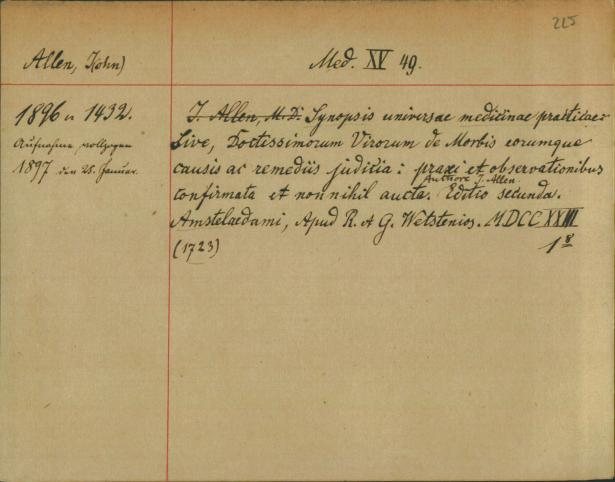 225
Allen, John)
Med. XV 49.
1896 n 1432.
Aufnahme vollzogen
1897 den 25. Januar.
J. Allen, M.D: Synopsis universae medicinae practicae:
Sive, Doctissimorum Virorum de Morbis eorumque
causis ac remediis judicia: praxi et observationibus
Authore J. Allen
confirmata et nonnihil aucta. Editio secunda.
Amstelaedami, Apud R. et G. Wetstenios. MDCCXXIII
(1723)
1 8